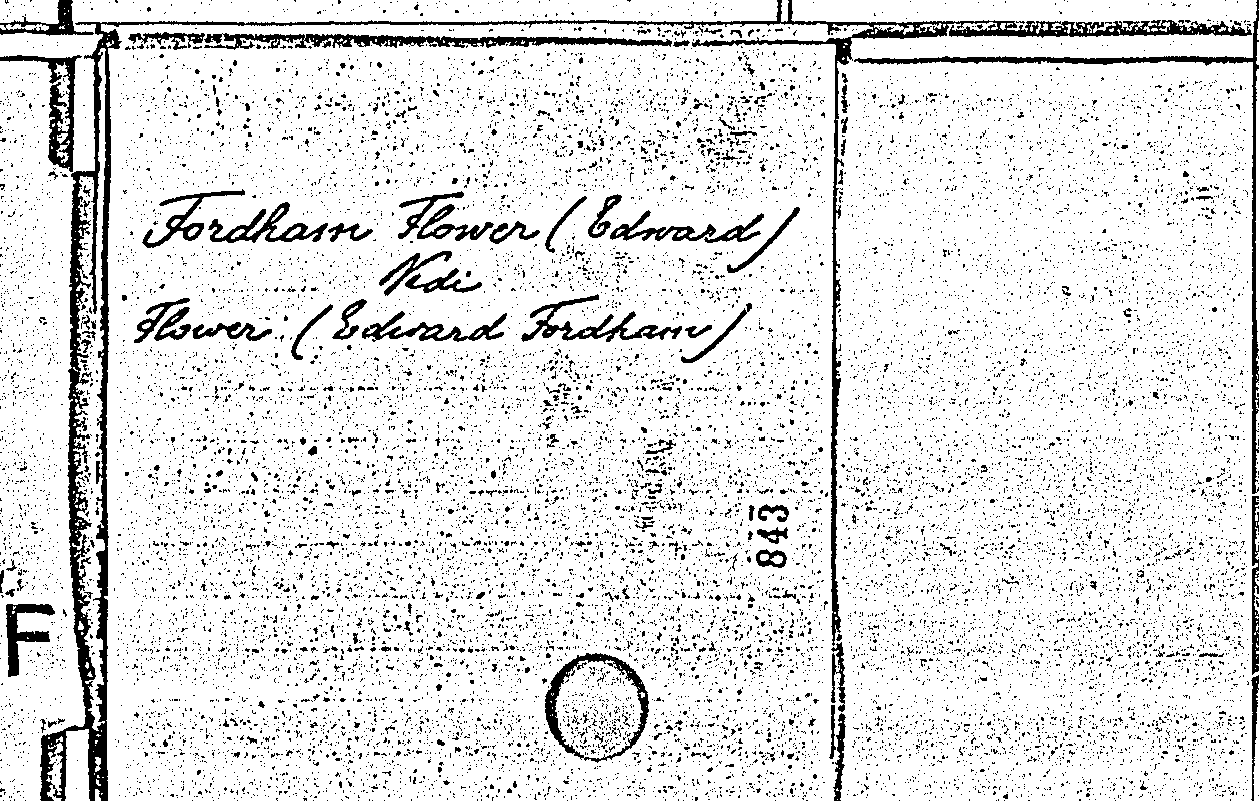 Fordham Flower (Edward)
Vedi
Flower. (Edward Fordham)
843
F